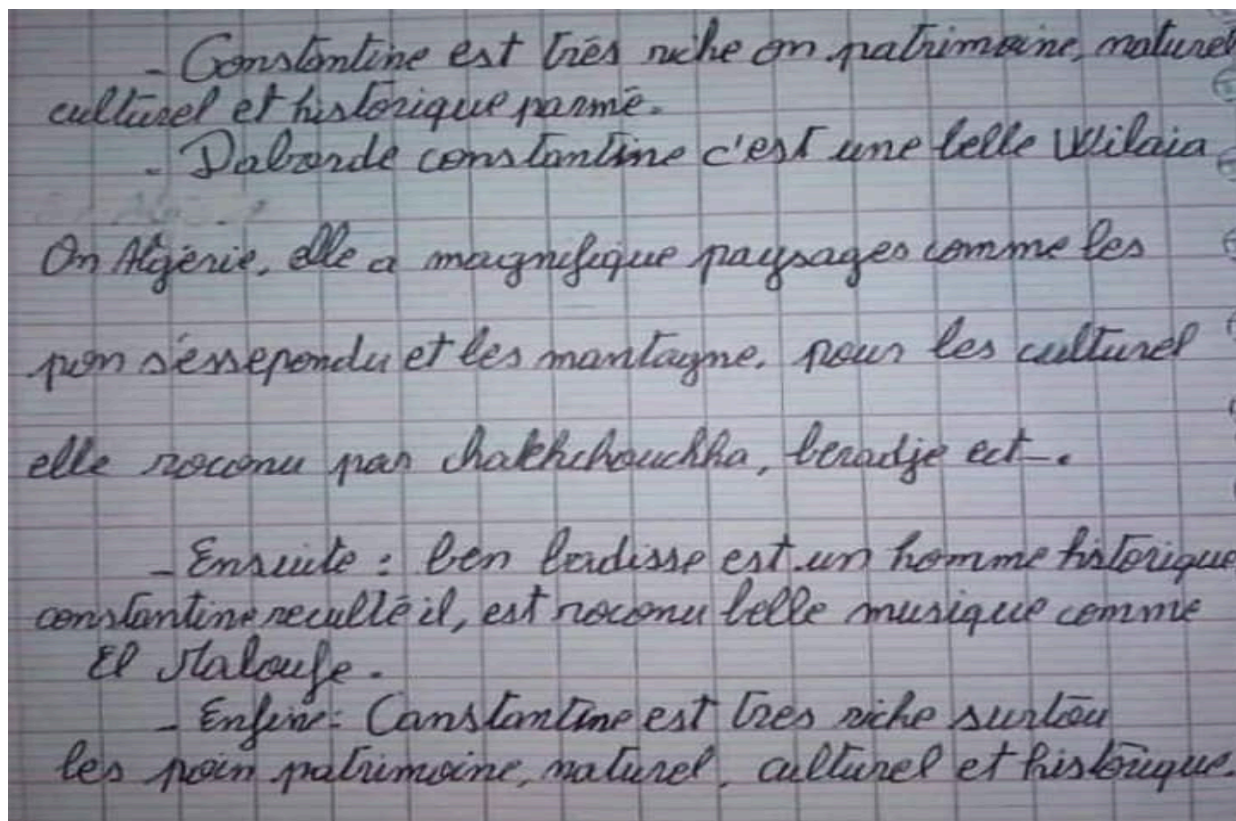 - Constantine est très riche on patrimoine, naturel
culturel et historique parmé.
- Daborde constantine c'est une belle Wilaia
On Algérie, elle a magnifique paysages comme les
pon séssependu et les mantagne. pour les culturel
elle roconu par chakhchoukha, beradje ect -.
- Ensuite : ben badisse est un homme historique
constantine recullé il, est roconu belle musique comme
El Maloufe.
- Enfine : Canstantine est tres riche surtou
les poin patrimoine, naturel, culturel et historique.